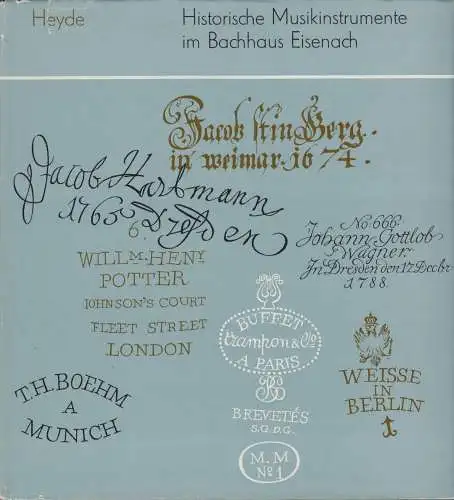 Heyde
Historische Musikinstrumente
im Bachhaus Eisenach
Jacob stin Berg.
in weimar. 1674.
Jacob Hartmann
1763 Dresden
6
No. 666.
Johann Gottlob
Wagner
In Dresden den 17 Decbr
1788.
WILLM HENY
POTTER
JOHNSON'S COURT
FLEET STREET
LONDON
BUFFET
Crampon & Cie
A PARIS
BREVETÉS
S.G.D.G.
M.M
No 1
WEISSE
IN
BERLIN
T.H. BOEHM
A
MUNICH